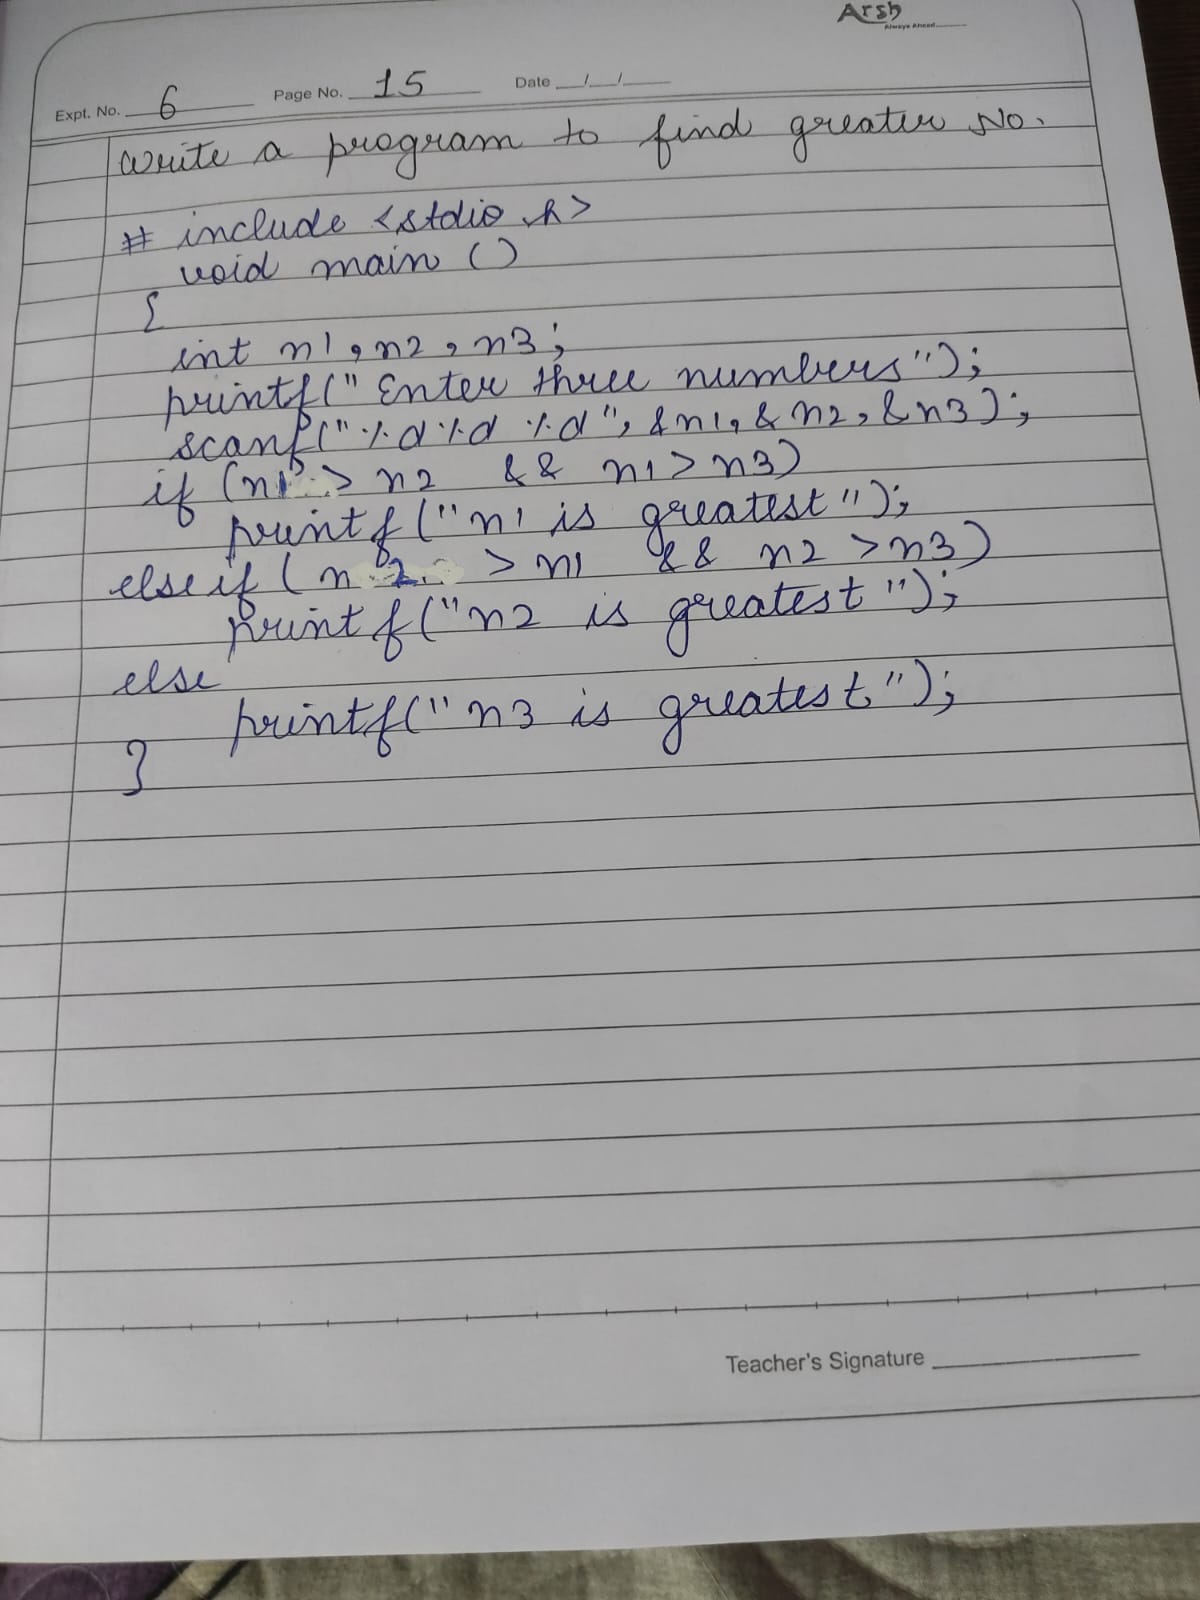 Arsh
Always Ahead
Expt. No. 6 Page No. 15 Date / /
Write a program to find greater No.
# include <stdio.h>
void main ()
{
int n1, n2, n3;
printf("Enter three numbers");
scanf("%d %d %d", &n1, & n2, &n3);
if (n1 > n2 && n1 > n3)
printf("n1 is greatest");
else if (n2 > n1 && n2 > n3)
printf("n2 is greatest");
else
printf("n3 is greatest");
}
Teacher's Signature